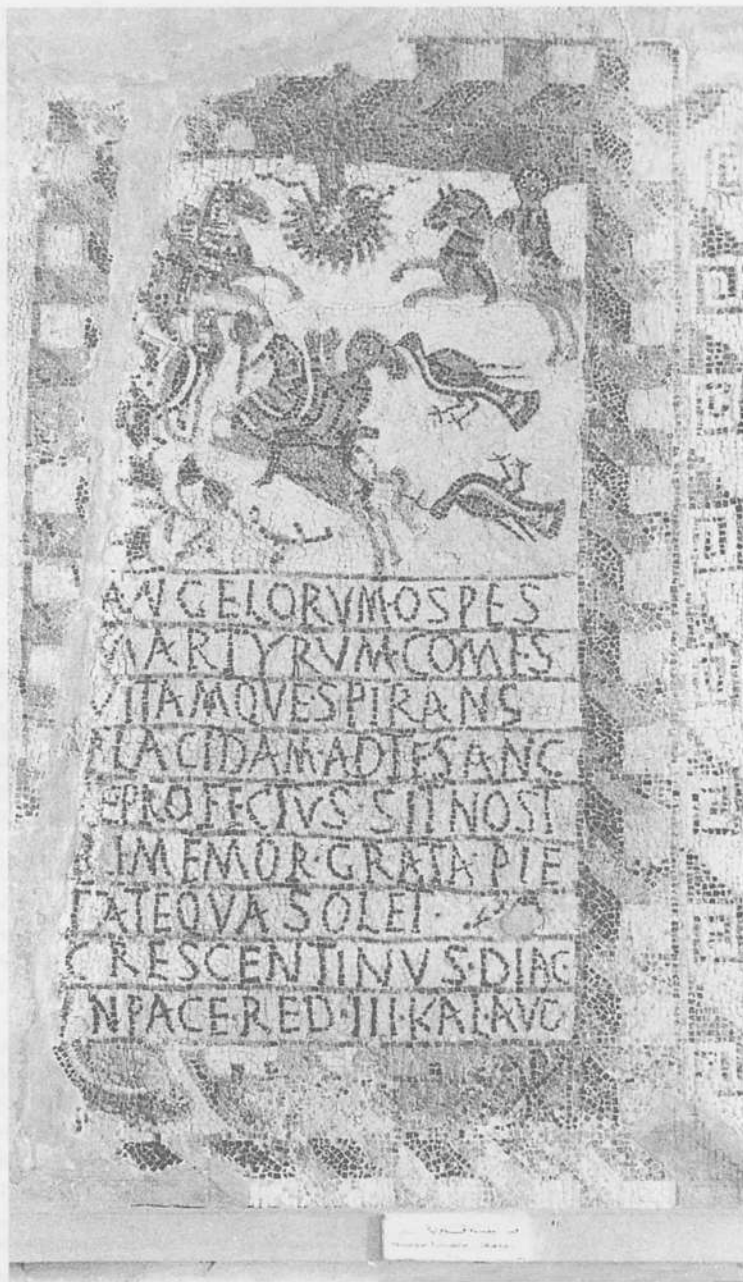 ANGELORVM·OSPES
MARTYRVM·COMES
VITAMQVESPIRANS
PLACIDAM·ADTESANC
TEPROFECTVS·SITNOST
RIMEMOR·GRATA·PIE
TATEQVA SOLET·
CRESCENTINVS·DIAC·
NPACE·RED·III·KAL·AVG